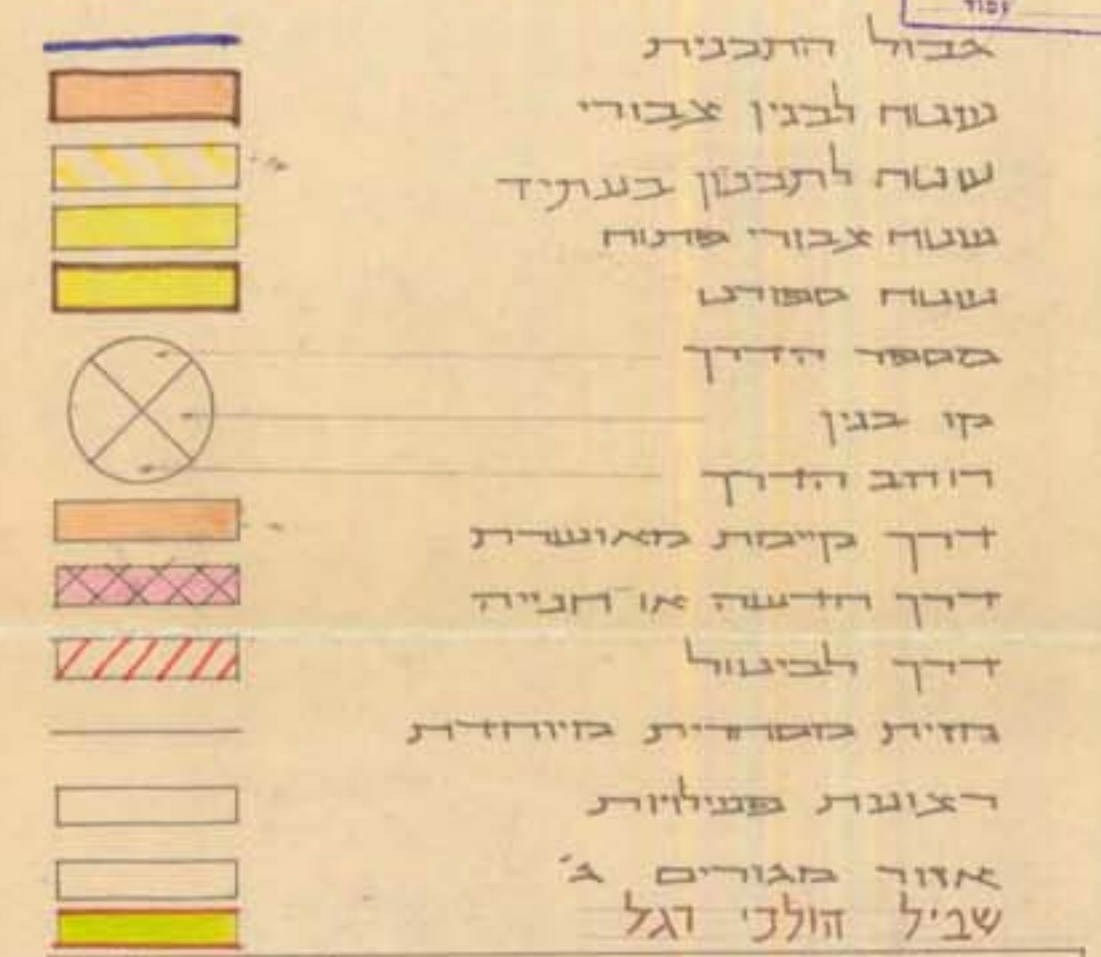 גבול התכנית
שטח לבנין צבורי
שטח לתכנון בעתיד
שטח צבורי פתוח
שטח ספורט
מספר הדרך
קו בנין
רוחב הדרך
דרך קיימת מאושרת
דרך חדשה או חנייה
דרך לביטול
חזית מסחרית מיוחדת
רצועת פעילויות
אזור מגורים ג'
שביל הולכי רגל